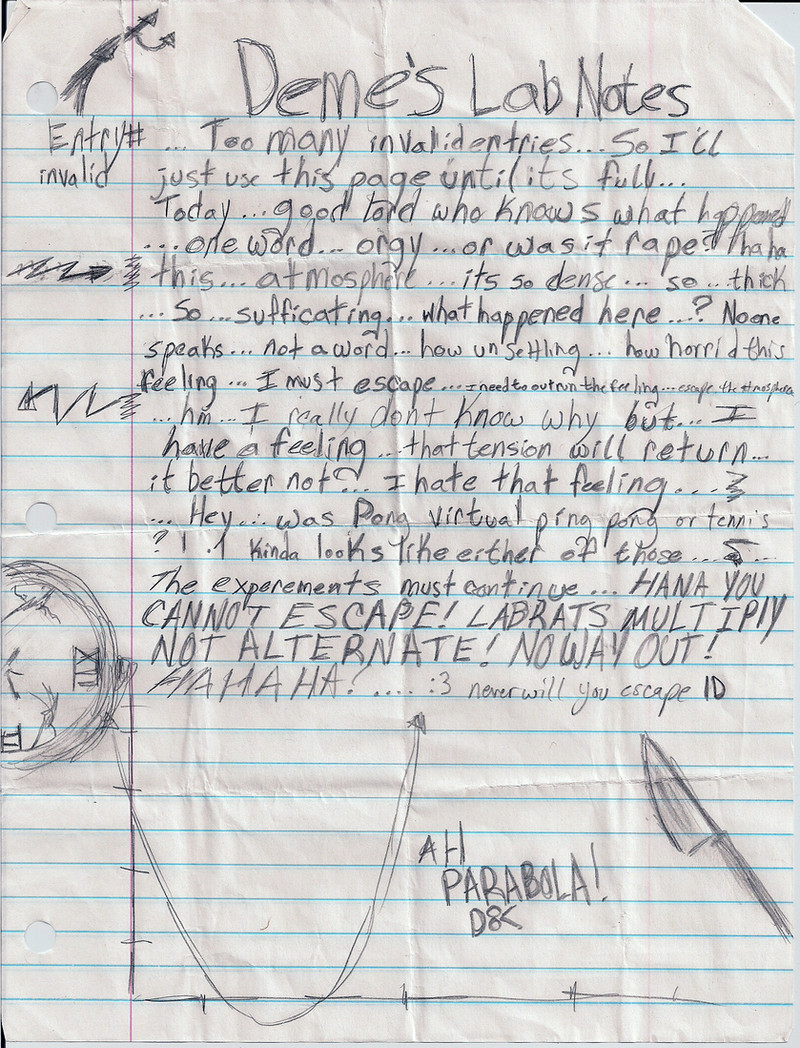 Deme's Lab Notes
Entry# ... Too many invalid entries... So I'll
invalid just use this page until its full...
Today... good lord who knows what happened
... one word... orgy ... or was it rape? haha
this... atmosphere ... its so dense... so... thick
... So ... sufficating... what happened here ...? No one
speaks... not a word... how unsettling... how horrid this
feeling ... I must escape ... I need to outrun the feeling... escape the atmosphere
... hm... I really dont know why but... I
have a feeling ... that tension will return...
it better not?... I hate that feeling ...
... Hey... was Pong virtual ping pong or tennis
?! Kinda looks like either of those ...
The experements must continue ... HANA YOU
CANNOT ESCAPE! LABRATS MULTIPLY
NOT ALTERNATE! NO WAY OUT!
HAHAHA! .... :3 never will you escape ID
AH
PARABOLA!
D8<